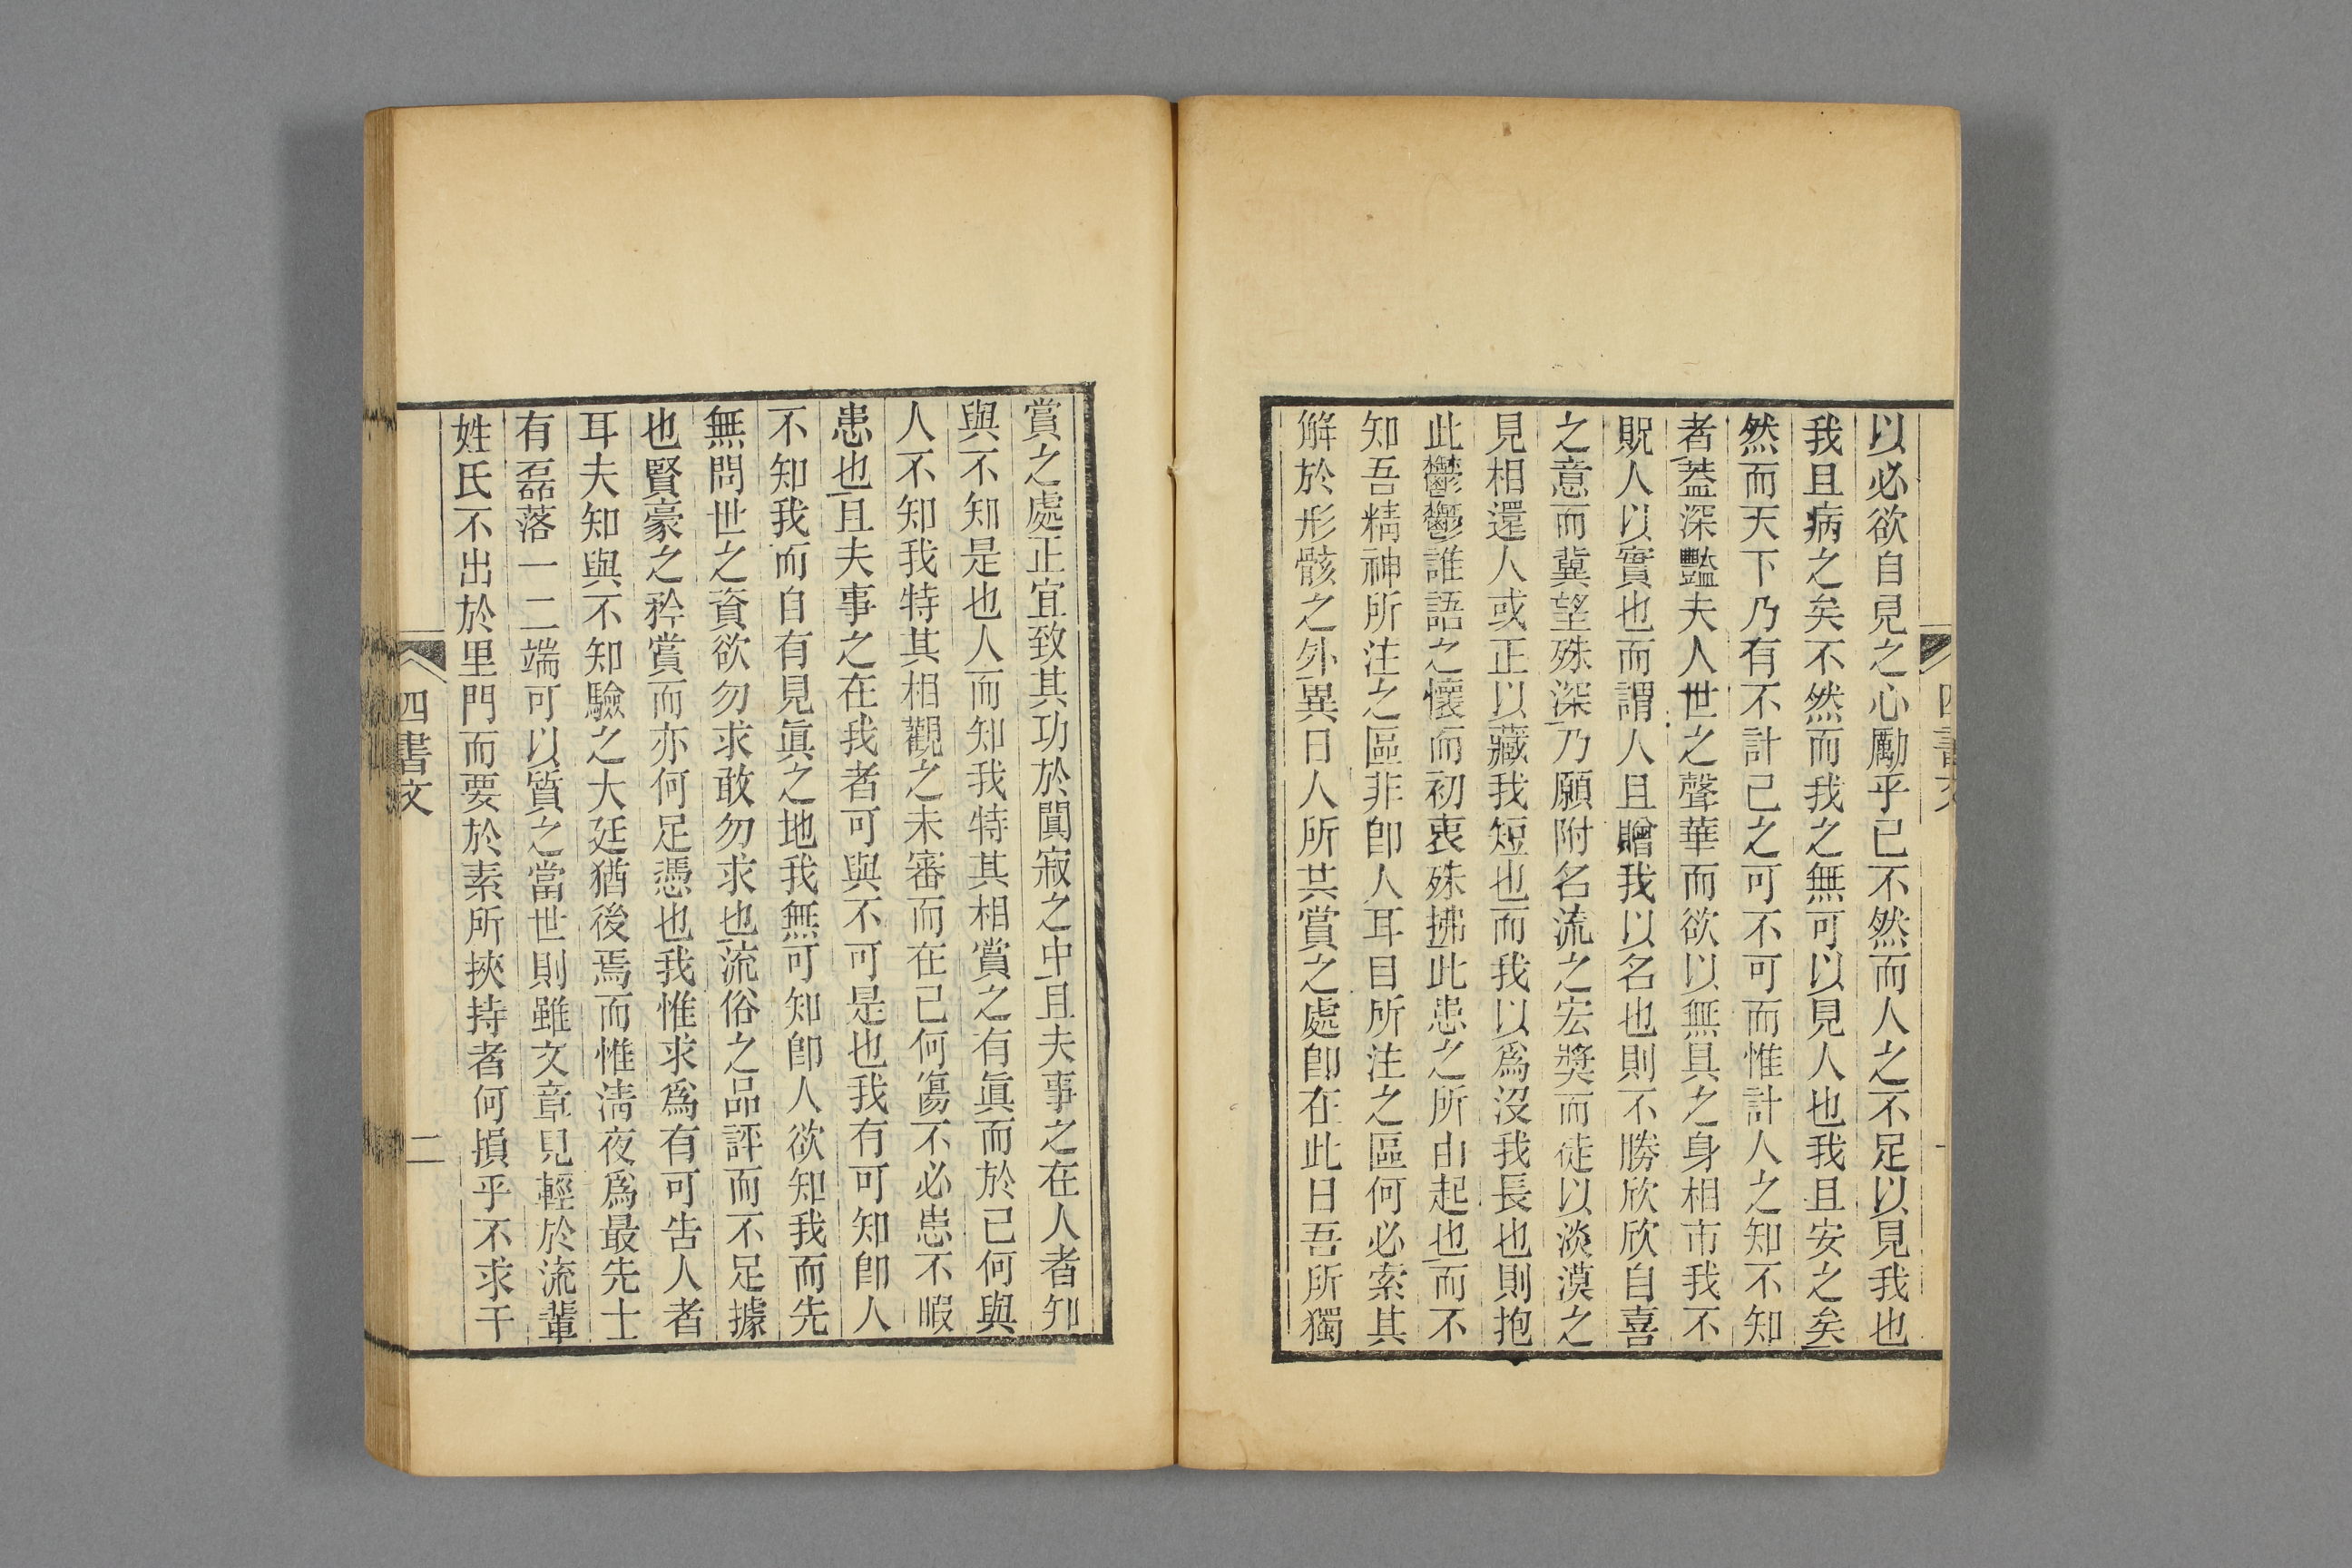 以必欲自見之心勵乎己不然而人之不足以見我也
我且病之矣不然而我之無可以見人也我且安之矣
然而天下乃有不計己之可不可而惟計人之知不知
者蓋深豔夫人世之聲華而欲以無具之身相市我不
貺人以實也而謂人且贈我以名也則不勝欣欣自喜
之意而冀望殊深乃願附名流之宏獎而徒以淡漠之
見相還人或正以藏我短也而我以爲沒我長也則抱
此鬱鬱誰語之懷而初衷殊拂此患之所由起也而不
知吾精神所注之區非卽人耳目所注之區何必索其
解於形骸之外異日人所共賞之處卽在此日吾所獨
賞之處正宜致其功於闃寂之中且夫事之在人者知
與不知是也人而知我特其相賞之有眞而於己何與
人不知我特其相觀之未審而在己何傷不必患不暇
患也且夫事之在我者可與不可是也我有可知卽人
不知我而自有見眞之地我無可知卽人欲知我而先
無問世之資欲勿求敢勿求也流俗之品評而不足據
也賢豪之矜賞而亦何足憑也我惟求爲有可告人者
耳夫知與不知驗之大廷猶後焉而惟淸夜爲最先士
有磊落一二端可以質之當世則雖文章見輕於流輩
姓氏不出於里門而要於素所挾持者何損乎不求干
四書文
二